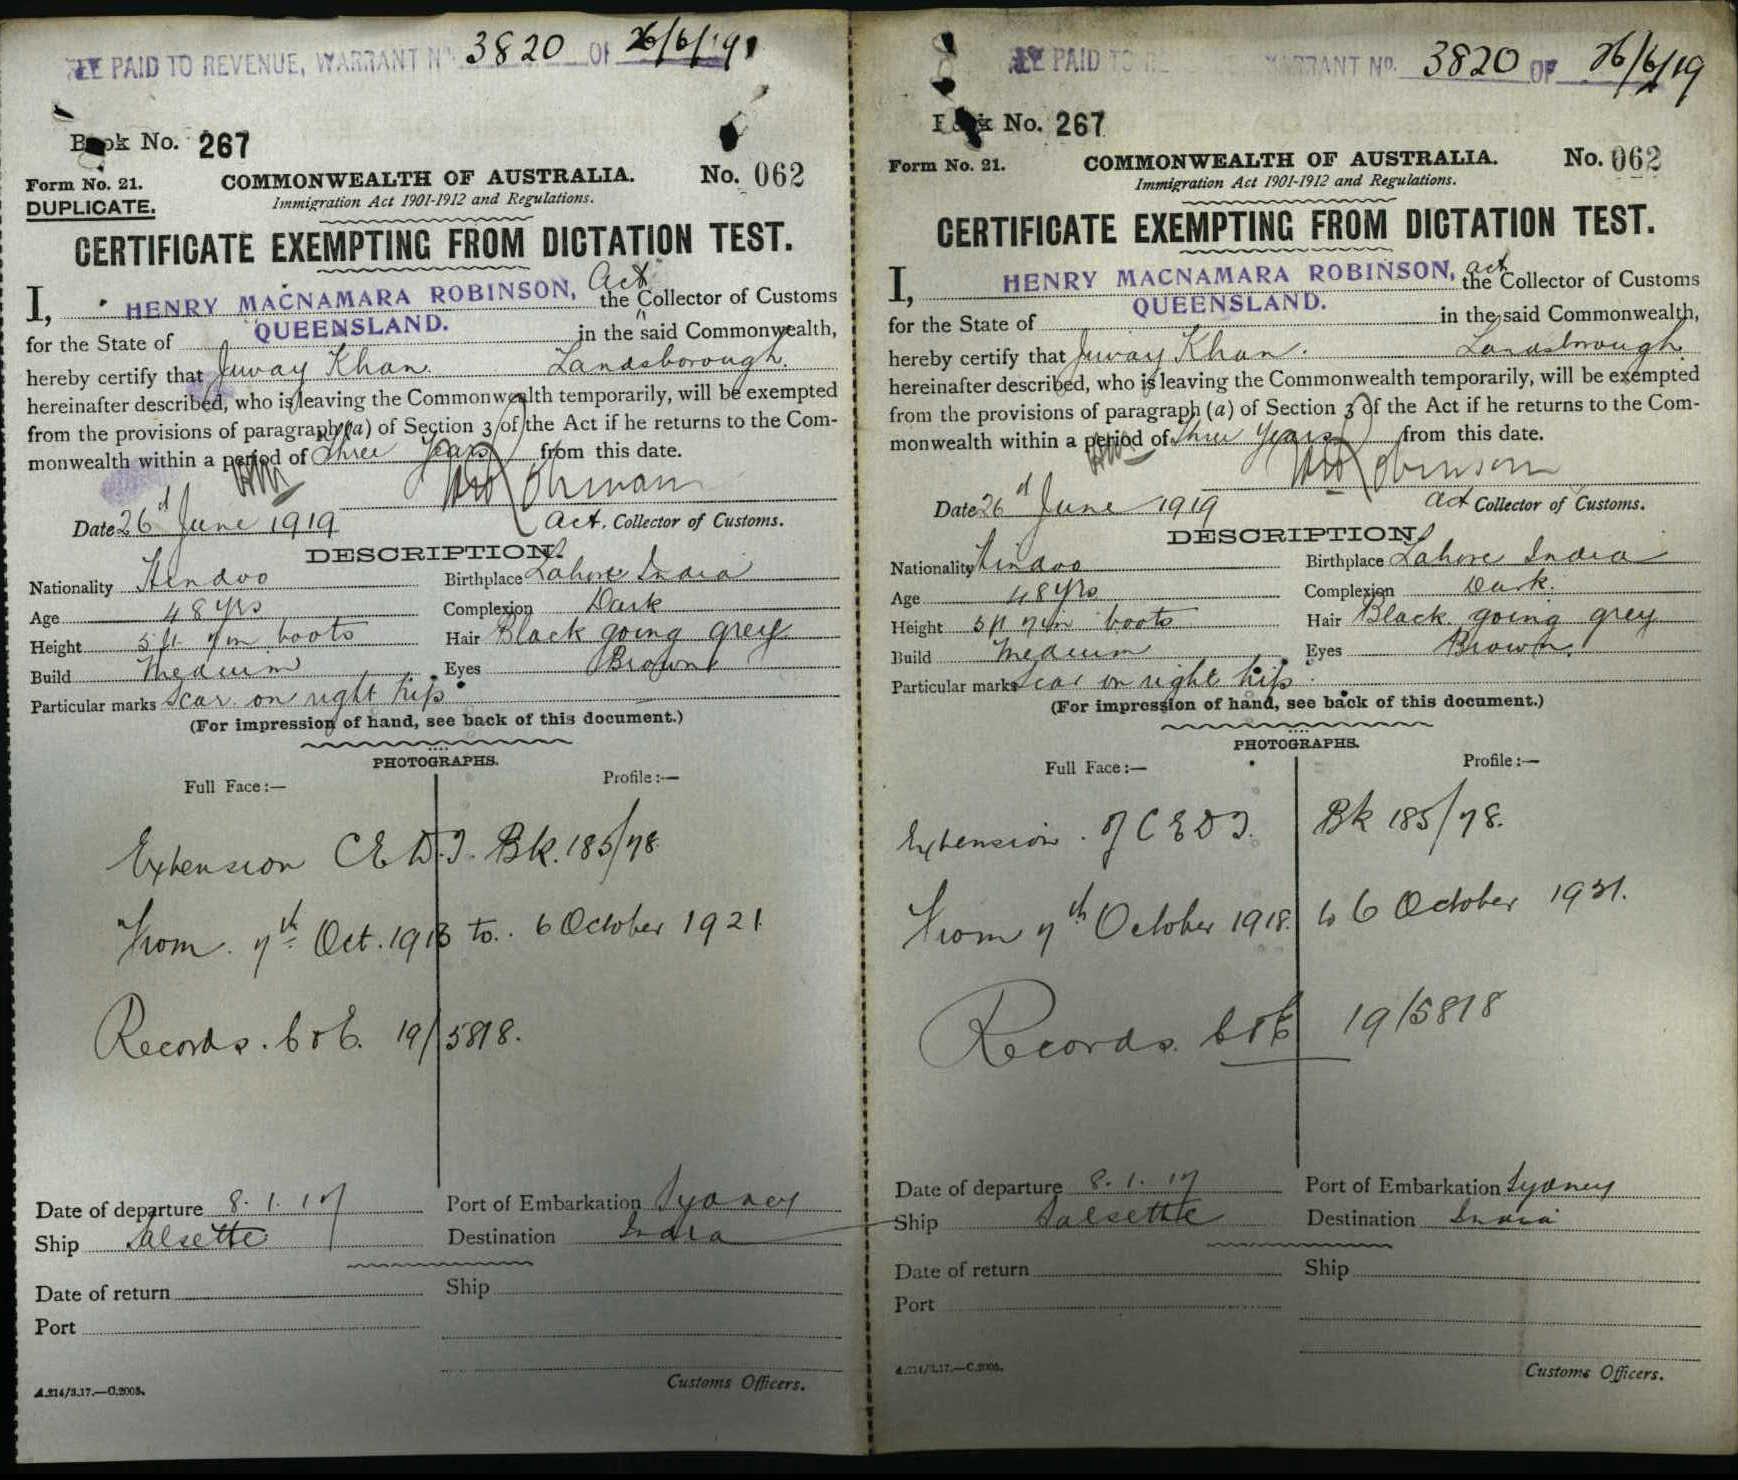 FEE PAID TO REVENUE, WARRANT No 3820 OF 26/6/19
Book No. 267
Form No. 21.
DUPLICATE.
COMMONWEALTH OF AUSTRALIA.
No. 062
Immigration Act 1901-1912 and Regulations.
CERTIFICATE EXEMPTING FROM DICTATION TEST.
I, HENRY MACNAMARA ROBINSON, Act the Collector of Customs
for the State of QUEENSLAND. in the said Commonwealth,
hereby certify that Juway Khan. Landsborough.
hereinafter described, who is leaving the Commonwealth temporarily, will be exempted
from the provisions of paragraph (a) of Section 3 of the Act if he returns to the Com-
monwealth within a period of Three Years from this date.
Date 26th June 1919
Act. Collector of Customs.
DESCRIPTION.
Nationality Hindoo Birthplace Lahore India
Age 48 yrs Complexion Dark
Height 5 ft 7 in boots Hair Black going grey
Build Medium Eyes Brown
Particular marks Scar on right hip
(For impression of hand, see back of this document.)
PHOTOGRAPHS.
Full Face:— Profile:—
Extension C.E.D.T. Bk. 185/78
From 7th Oct. 1918 to 6 October 1921
Records. C & E. 19/5818.
Date of departure 8.1.17 Port of Embarkation Sydney
Ship Salsette Destination India
Date of return Ship
Port
Customs Officers.
A.214/3.17.—C.2005.
FEE PAID TO WARRANT No. 3820 OF 26/6/19
Book No. 267
Form No. 21.
COMMONWEALTH OF AUSTRALIA.
No. 062
Immigration Act 1901-1912 and Regulations.
CERTIFICATE EXEMPTING FROM DICTATION TEST.
I, HENRY MACNAMARA ROBINSON, act the Collector of Customs
for the State of QUEENSLAND. in the said Commonwealth,
hereby certify that Juway Khan. Landsborough.
hereinafter described, who is leaving the Commonwealth temporarily, will be exempted
from the provisions of paragraph (a) of Section 3 of the Act if he returns to the Com-
monwealth within a period of Three Years from this date.
Date 26th June 1919
Act Collector of Customs.
DESCRIPTION.
Nationality Hindoo Birthplace Lahore India
Age 48 yrs Complexion Dark.
Height 5 ft 7 in boots Hair Black going grey
Build Medium Eyes Brown.
Particular marks Scar on right hip
(For impression of hand, see back of this document.)
PHOTOGRAPHS.
Full Face:— Profile:—
Extension of C E D T. Bk 185/78.
From 7th October 1918. to 6 October 1921.
Records. C & E 19/5818
Date of departure 8.1.17 Port of Embarkation Sydney
Ship Salsette Destination India
Date of return Ship
Port
Customs Officers.
A.214/3.17.—C.2005.